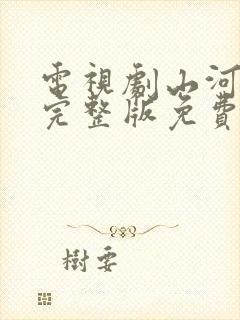 電視劇山河
完整版免費
樹要